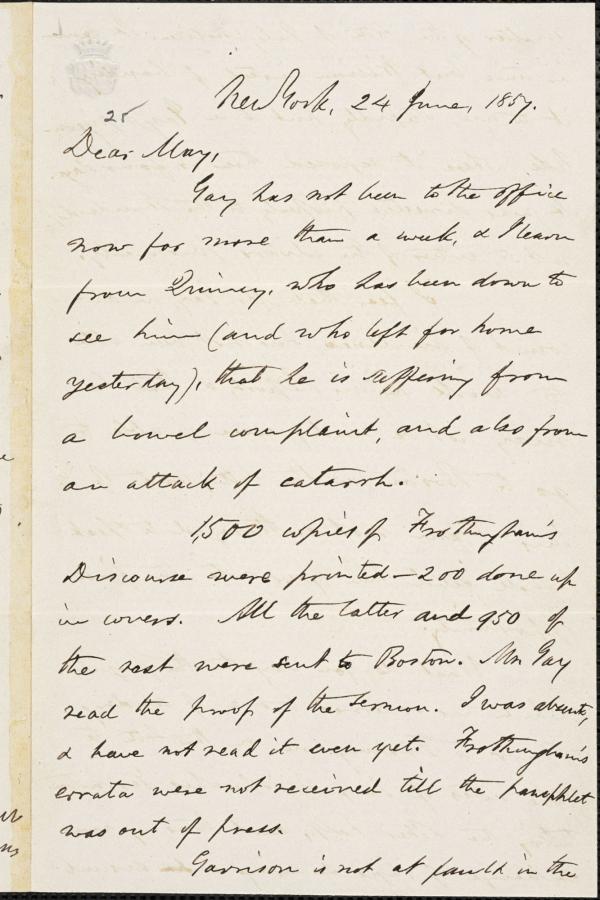 25
New York, 24 June, 1857.
Dear May,
Gay has not been to the office
now for more than a week, & I learn
from Quincy, who has been down to
see him (and who left for home
yesterday), that he is suffering from
a bowel complaint, and also from
an attack of catarrh.
1,500 copies of Frothingham's
Discourse were printed—200 done up
in covers. All the latter and 950 of
the rest were sent to Boston. Mr. Gay
read the proof of the sermon. I was absent,
& have not read it even yet. Frothingham's
errata were not received till the pamphlet
was out of press.
Garrison is not at fault in the